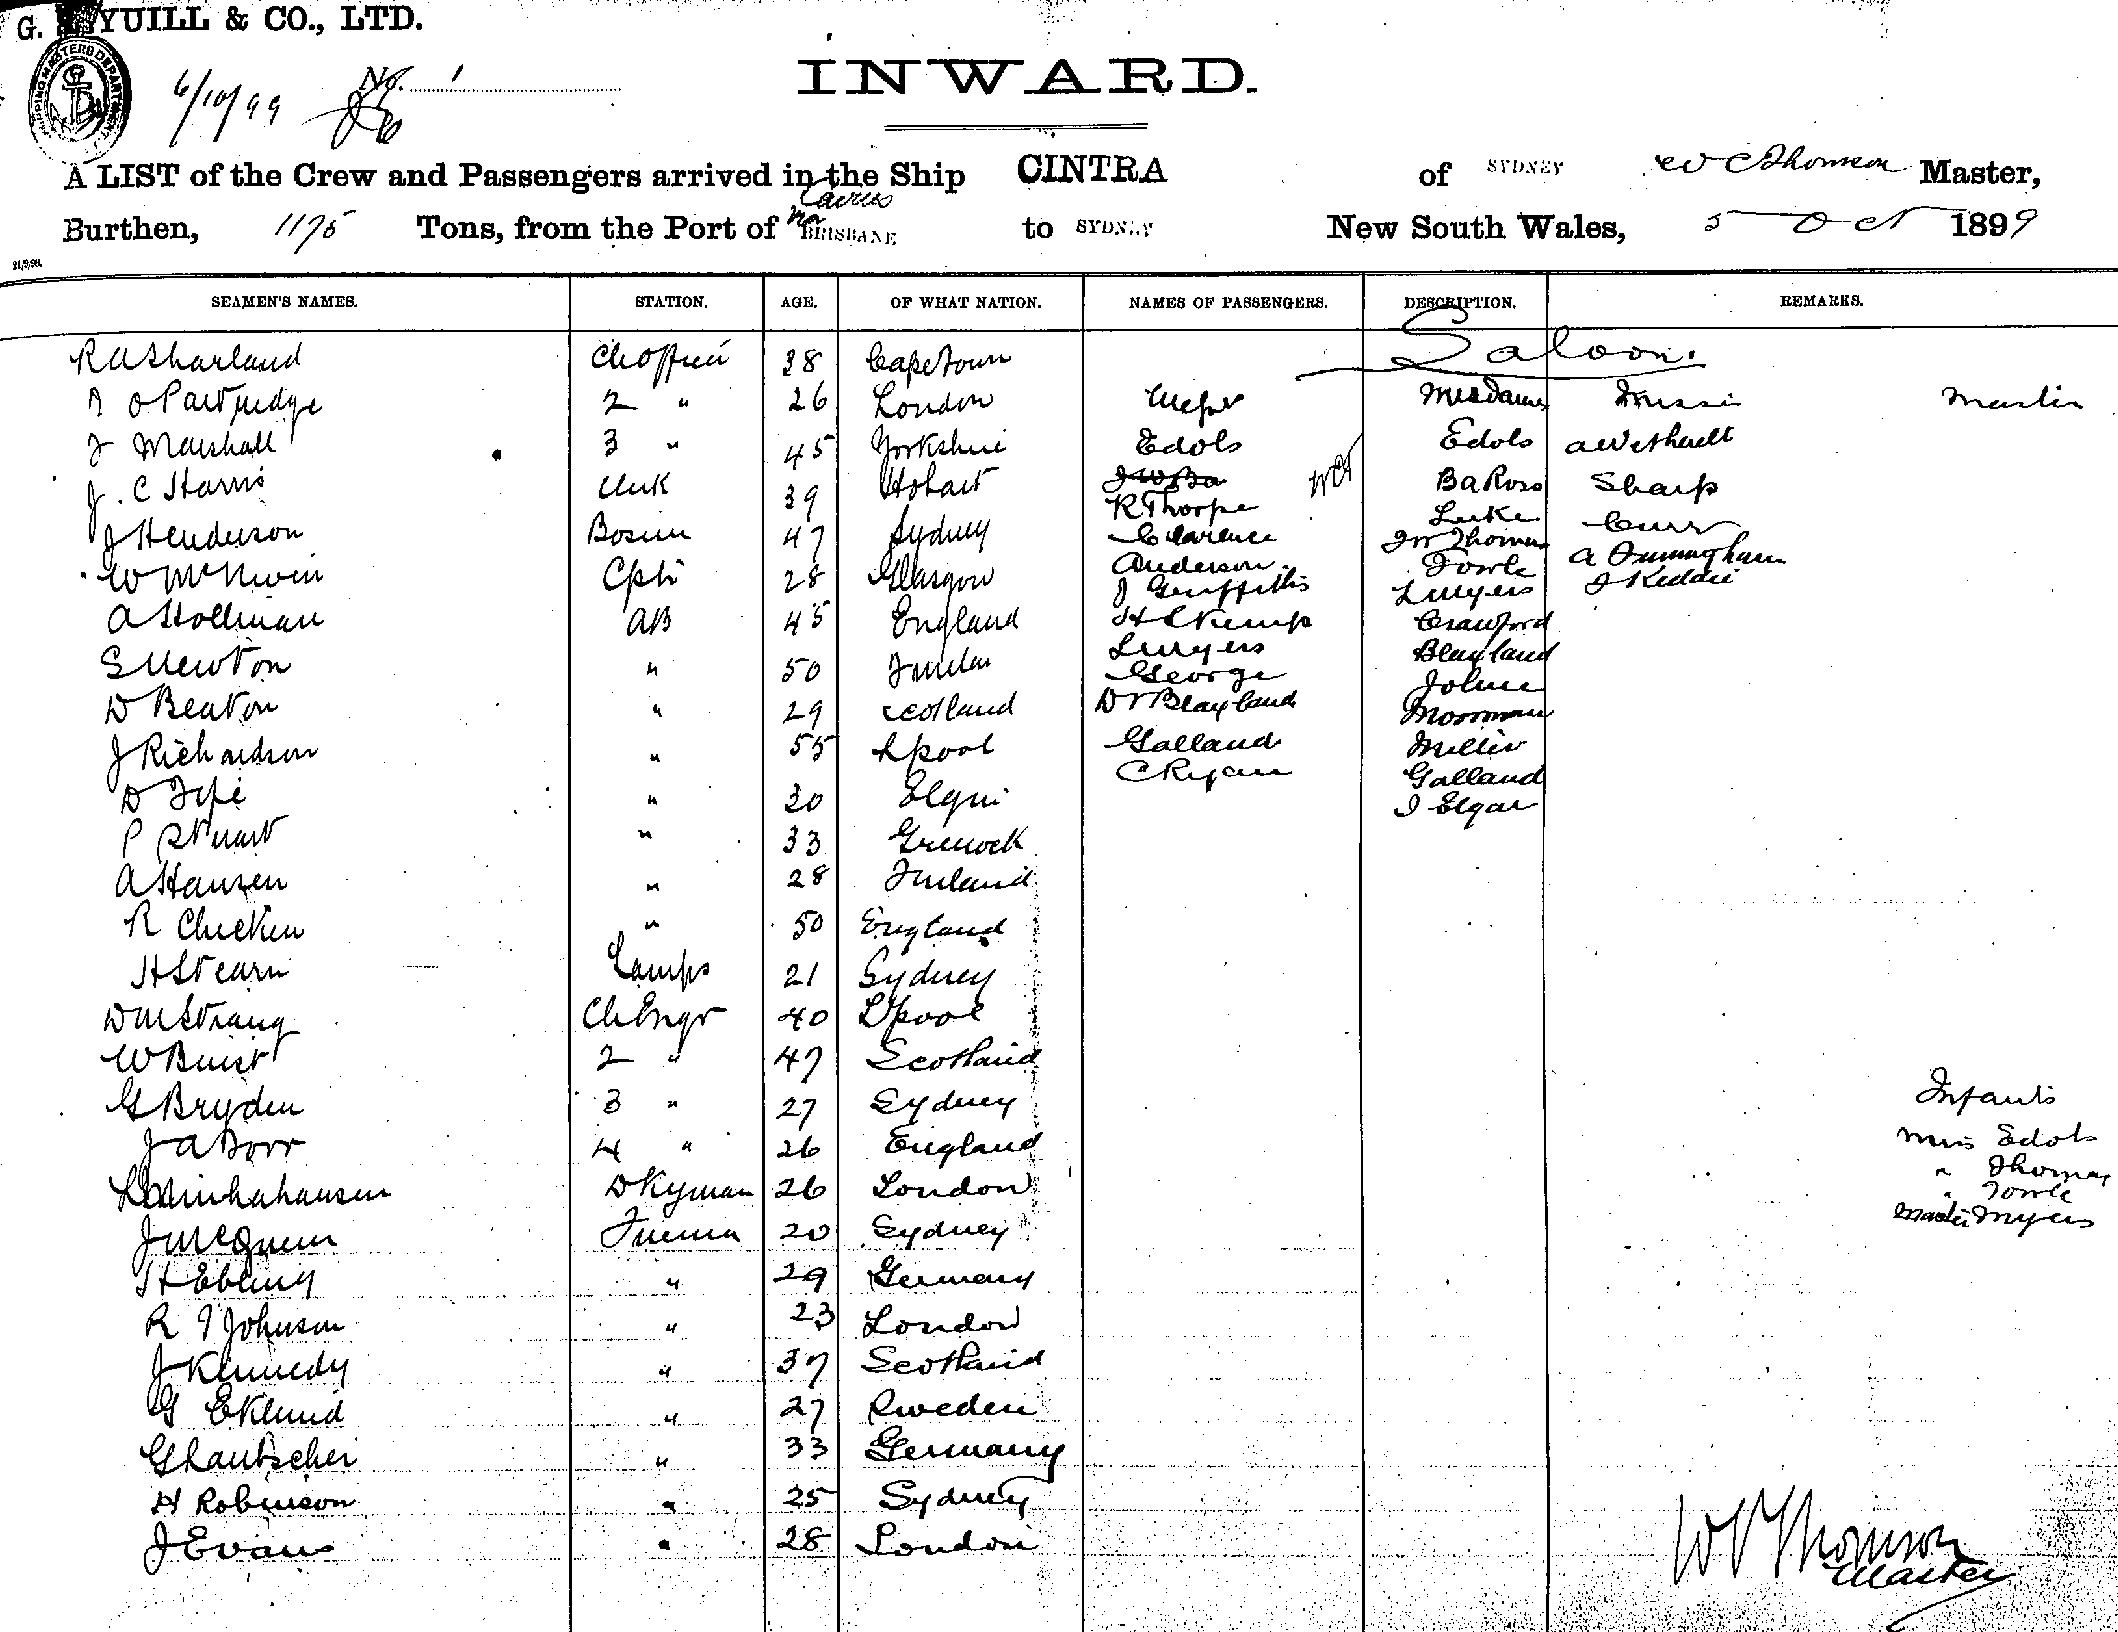 G. YUILL & CO., LTD.
6/10/99 No. 1
INWARD.
A LIST of the Crew and Passengers arrived in the Ship CINTRA of SYDNEY W C Thomson Master,
Cairns
Burthen, 1175 Tons, from the Port of BRISBANE to SYDNEY New South Wales, 5 Oct 1899
SEAMEN'S NAMES. STATION. AGE. OF WHAT NATION. NAMES OF PASSENGERS. DESCRIPTION. REMARKS.
Saloon.
R A Sharland Ch Officer 38 Capetown
Partridge 2 " 26 London Messrs Mesdames Misses Master
J Marshall 3 " 45 Yorkshire Edols Edols A Wetherell
J. C Harris Clerk 39 Hobart Ba Ross Sharp
R Thorpe Luke
J Henderson Bosun 47 Sydney Clarence Thomas
W McNiven 28 Glasgow Anderson Towle A Cunningham
J Griffiths J Keddie
A Hollman AB 45 England H C Kemp Crawford
S Newton " 50 Blaxland
George
D Beaton " 29 Scotland Dr Blaxland Moorman
J Richardson " 55 Lpool Galland Miller
C Ryan Galland
D Fife " 30 Elgin J Elgar
P Stuart " 33 Grenock
A Hansen " 28 Finland
R Chicken " 50 England
H Stearn Lamps 21 Sydney
D M Strang Ch Engr 40 L'pool
W Buist 2 " 47 Scotland
G Bryden 3 " 27 Sydney Infants
J A Dorr 4 " 26 England Miss Edols
" Thomas
DKyman 26 London " Towle
Master Myers
J McQueen Fireman 20 Sydney
H Ebling " 29 Germany
R J Johnson " 23 London
J Kennedy " 37 Scotland
G Eklund " 27 Sweden
G Lautscher " 33 Germany
H Robinson " 25 Sydney
J Evans " 28 London
W C Thomson
Master